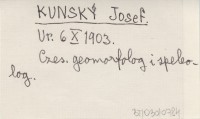 KUNSKÝ Josef.
Ur. 6 X 1903.
Czes. geomorfolog i speleo-
log.